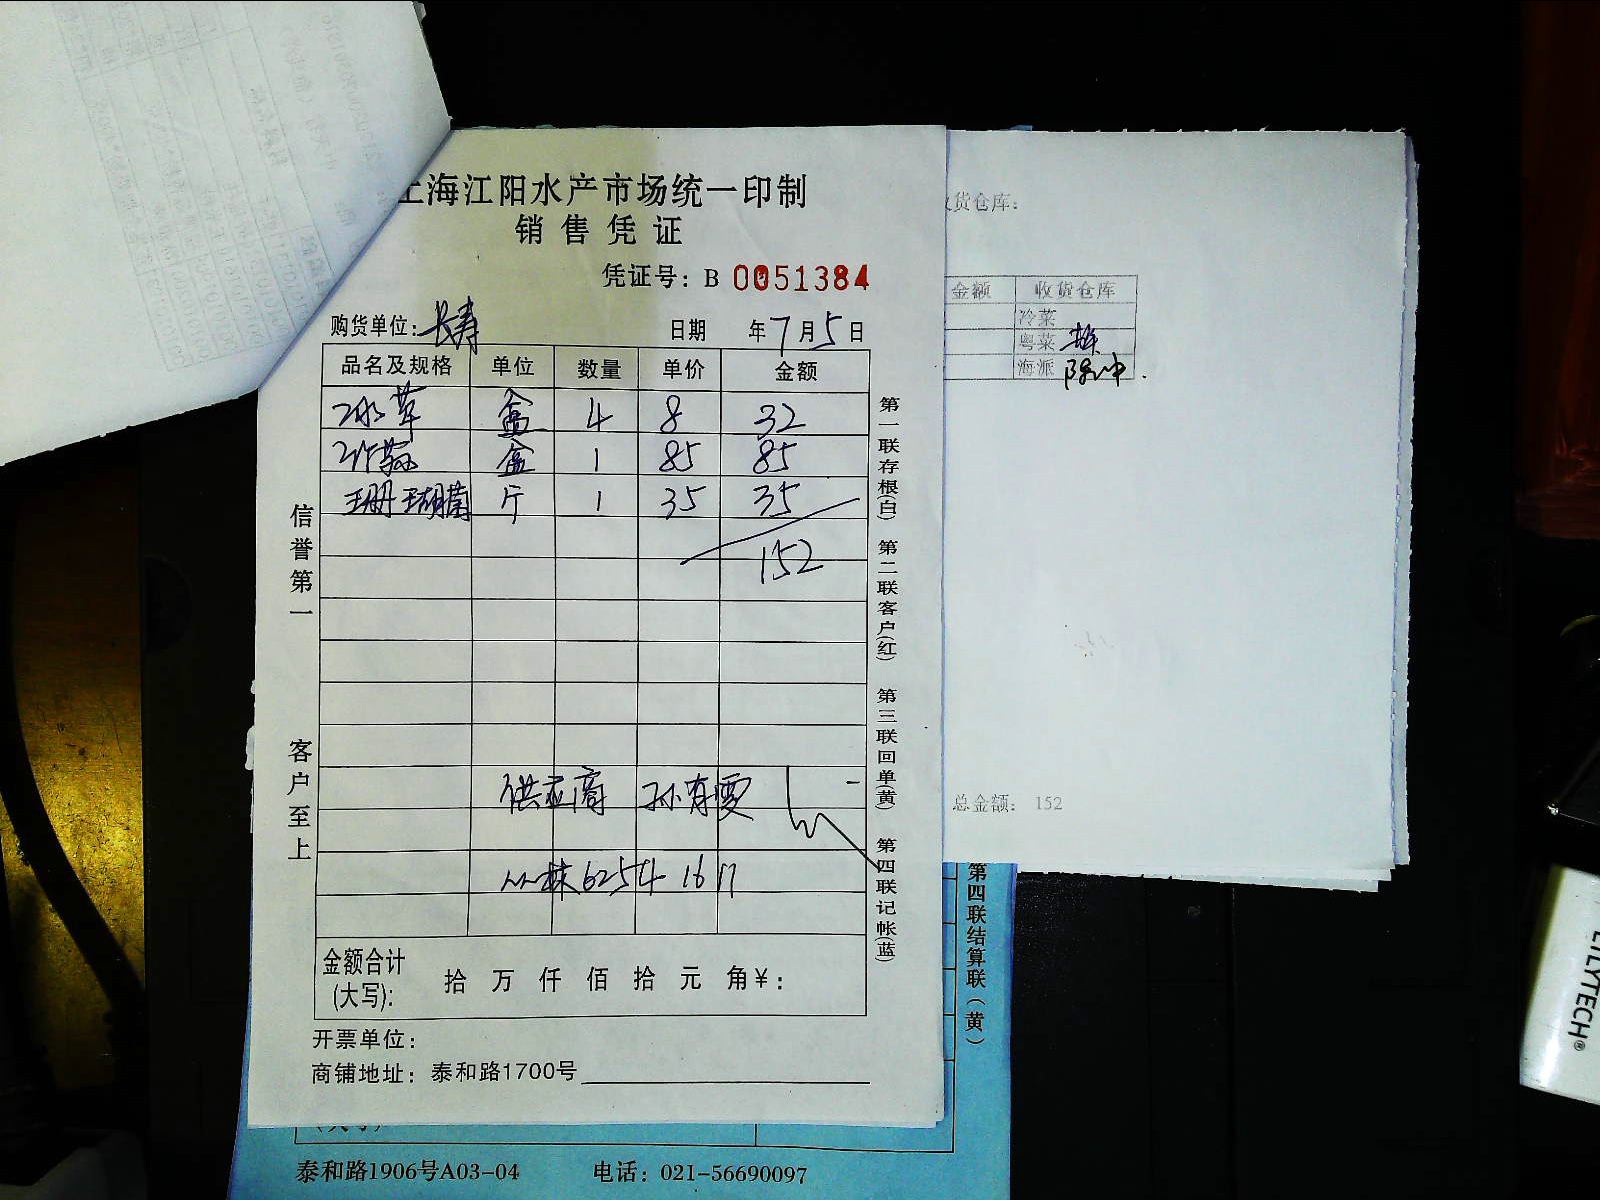 上海江阳水产市场统一印制
销售凭证
凭证号：B 0051384
购货单位：长寿 日期 年7月5日
品名及规格 单位 数量 单价 金额
冰草 盒 4 8 32
盒 1 85 85
珊瑚菌 斤 1 35 35
152
供应商 孙有雯
6254 1617
金额合计
(大写): 拾 万 仟 佰 拾 元 角¥：
开票单位：
商铺地址：泰和路1700号
信誉第一
客户至上
第一联存根(白) 第二联客户(红) 第三联回单(黄) 第四联记帐(蓝)
货仓库：
金额 收货仓库
冷菜
粤菜
海派
总金额： 152
第四联结算联（黄）
泰和路1906号A03-04 电话：021-56690097
LILYTECH®